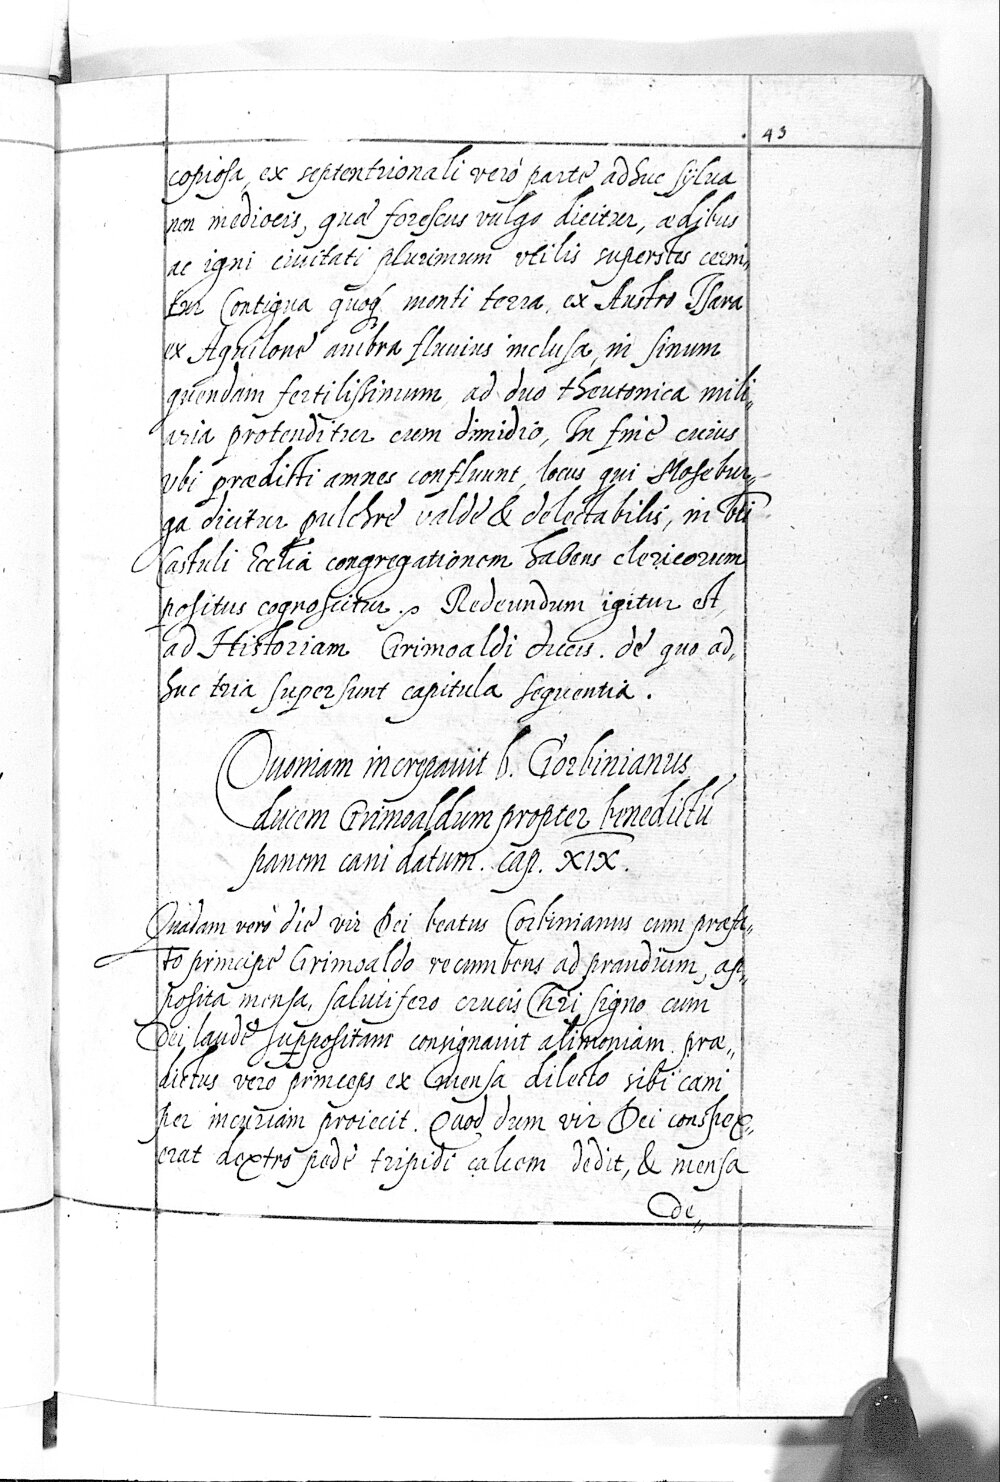 43
copiosa, ex septentrionali verò parte adhuc sylva
non mediocris, quæ forescus vulgo dicitur, ædibus
ac igni civitati plurimum vtilis superstes cerni„
tur Contigua quoq́ monti terra, ex Austro Isara
ex Aquilone ambra fluvius inclusa, in sinum
quendam fertilissimum, ad duo theutonica mili„
aria protenditur cum dimidio, In fine cuius
vbi prædicti amnes confluunt, locus qui Mosebur„
ga dicitur pulchre valde & delectabilis, in bti
Castuli Ecclia congregationem habens clericorum
positus cognoscitur. Redeundum igitur est
ad Historiam Grimoaldi ducis. de quo ad„
huc tria supersunt capitula sequentia.
Quoniam increpavit b. Corbinianus
ducem Grimoaldum propter benedictū
panem cani datum. cap. XIX.
Quadam verò die vir Dei beatus Corbinianus cum præfa„
to principe Grimoaldo recumbens ad prandium, ap„
posita mensa, salutifero crucis Chri signo cum
Dei laude suppositam consignavit alimoniam præ„
dictus vero princeps ex mensa dilecto sibi cani
per incuriam proiecit. Quod dum vir Dei conspex„
erat dextro pede tripidi calicem dedit, & mensa
de„